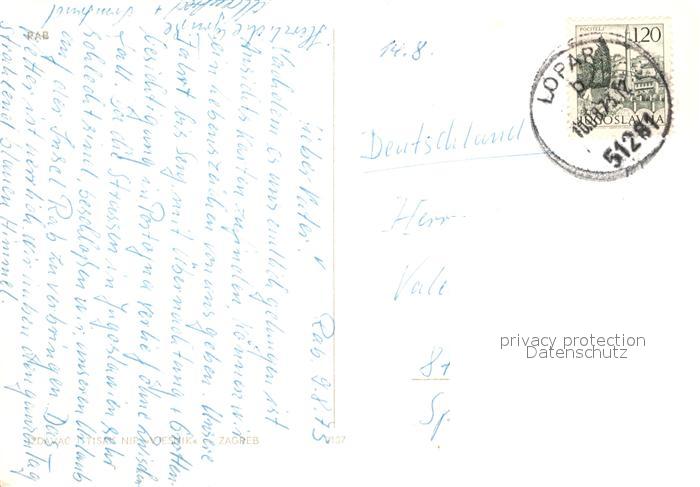 RAB
Rab, 9.8.73
Lieber Vater!
Nachdem es uns endlich gelungen ist
Ansichtskarten zu finden, können wir
ein Lebenszeichen von uns geben. Unsere
Fahrt bis Senj mit Übernachtung +
Besichtigung in verlief ohne
fall. Da die Strassen in Jugoslawien sehr
schlecht sind, beschloßen wir unseren Urlaub
auf der Insel Rab zu verbringen. Das
Wetter ist herrlich, wir haben den ganzen Tag
strahlend blauen Himmel
Herzliche Grüße
14.8.
Deutschland
Herr
Vale
8+
Sp.
IZDAVAČ I TISAK NIP »VJESNIK« ZAGREB
137
POČITELJ
1,20
JUGOSLAVIJA
LOPAR
b
10.08.73.12
51281
privacy protection
Datenschutz